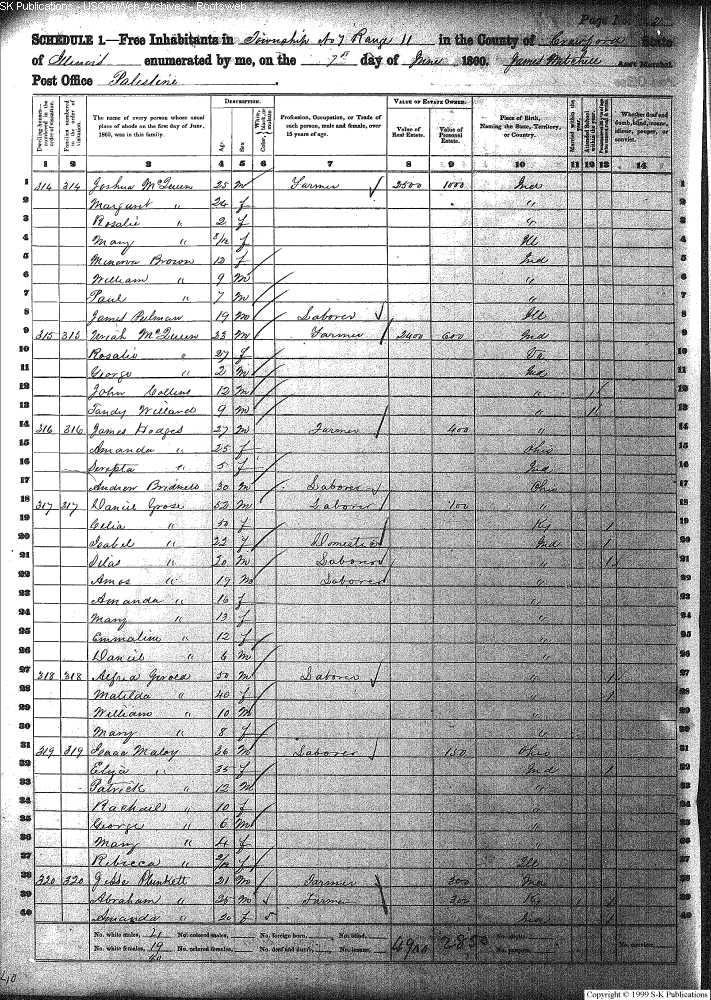 SK Publications - USGenWeb Archives - Rootsweb
Page No.
SCHEDULE 1.—Free Inhabitants in Township No 7 Range 11 in the County of Crawford State
of Illinois enumerated by me, on the 7th day of June 1860. James Mitchell Ass't Marshal
Post Office Palestine
Dwelling-houses—numbered in the order of visitation.
Families numbered in the order of visitation.
The name of every person whose usual place of abode on the first day of June, 1860, was in this family.
DESCRIPTION.
Age.
Sex.
Color, White, black, or mulatto
Profession, Occupation, or Trade of each person, male and female, over 15 years of age.
VALUE OF ESTATE OWNED.
Value of Real Estate.
Value of Personal Estate.
Place of Birth, Naming the State, Territory, or Country.
Married within the year.
Attended School within the year.
Whether deaf and dumb, blind, insane, idiotic, pauper, or convict.
1 2 3 4 5 6 7 8 9 10 11 12 13 14
1 314 314 Joshua McQueen 25 m Farmer 2500 1000 Ind 1
2 Margaret " 24 f " 2
3 Rosalie " 2 f " 3
4 Mary " 8/12 f Ill 4
5 Minerva Brown 12 f Ind 5
6 William " 9 m " 6
7 Paul " 7 m " 7
8 James Pulman 19 m Laborer Ill 8
9 315 315 Uriah McQueen 33 m Farmer 2400 600 Ind 9
10 Rosalie " 27 f 10
11 George " 2 m Ind 11
12 John Collins 12 m " 1 12
13 Tandy Willard 9 m " 1 13
14 316 316 James Hodges 27 m Farmer 400 " 14
15 Amanda " 25 f Ohio 15
16 Serepta " 5 f Ind 16
17 Andrew Bridwell 30 m Laborer Ohio 17
18 317 317 Daniel Grose 52 m Laborer 100 " 18
19 Celia " 50 f Ky 1 19
20 Isabel " 22 f Domestic Ind 1 20
21 Silas " 20 m Laborer " 1 21
22 Amos " 19 m Laborer " 22
23 Amanda " 16 f " 23
24 Mary " 13 f " 24
25 Emmaline " 12 f " 25
26 Daniel " 6 m " 26
27 318 318 50 m Laborer " 1 27
28 Matilda " 40 f " 1 28
29 William " 10 m " 29
30 Mary " 8 f " 30
31 319 319 Isaac Maloy 36 m Laborer 150 Ohio 31
32 Eliza " 35 f Ind 1 32
33 Patrick " 12 m " 33
34 Rachael " 10 f " 34
35 George " 6 m " 35
36 Mary " 4 f " 36
37 Rebecca " 2/12 f Ill 37
38 320 320 Plunkett 21 m Farmer 300 Ind 38
39 Abraham " 25 m Farmer 300 Ky 1 1 39
40 Amanda " 20 f Ind 1 1 40
No. white males, 21 No. colored males, No. foreign born, No. blind,
No. white females, 19 No. colored females, No. deaf and dumb, No. insane, 4900 2850
40
Copyright © 1999 S-K Publications